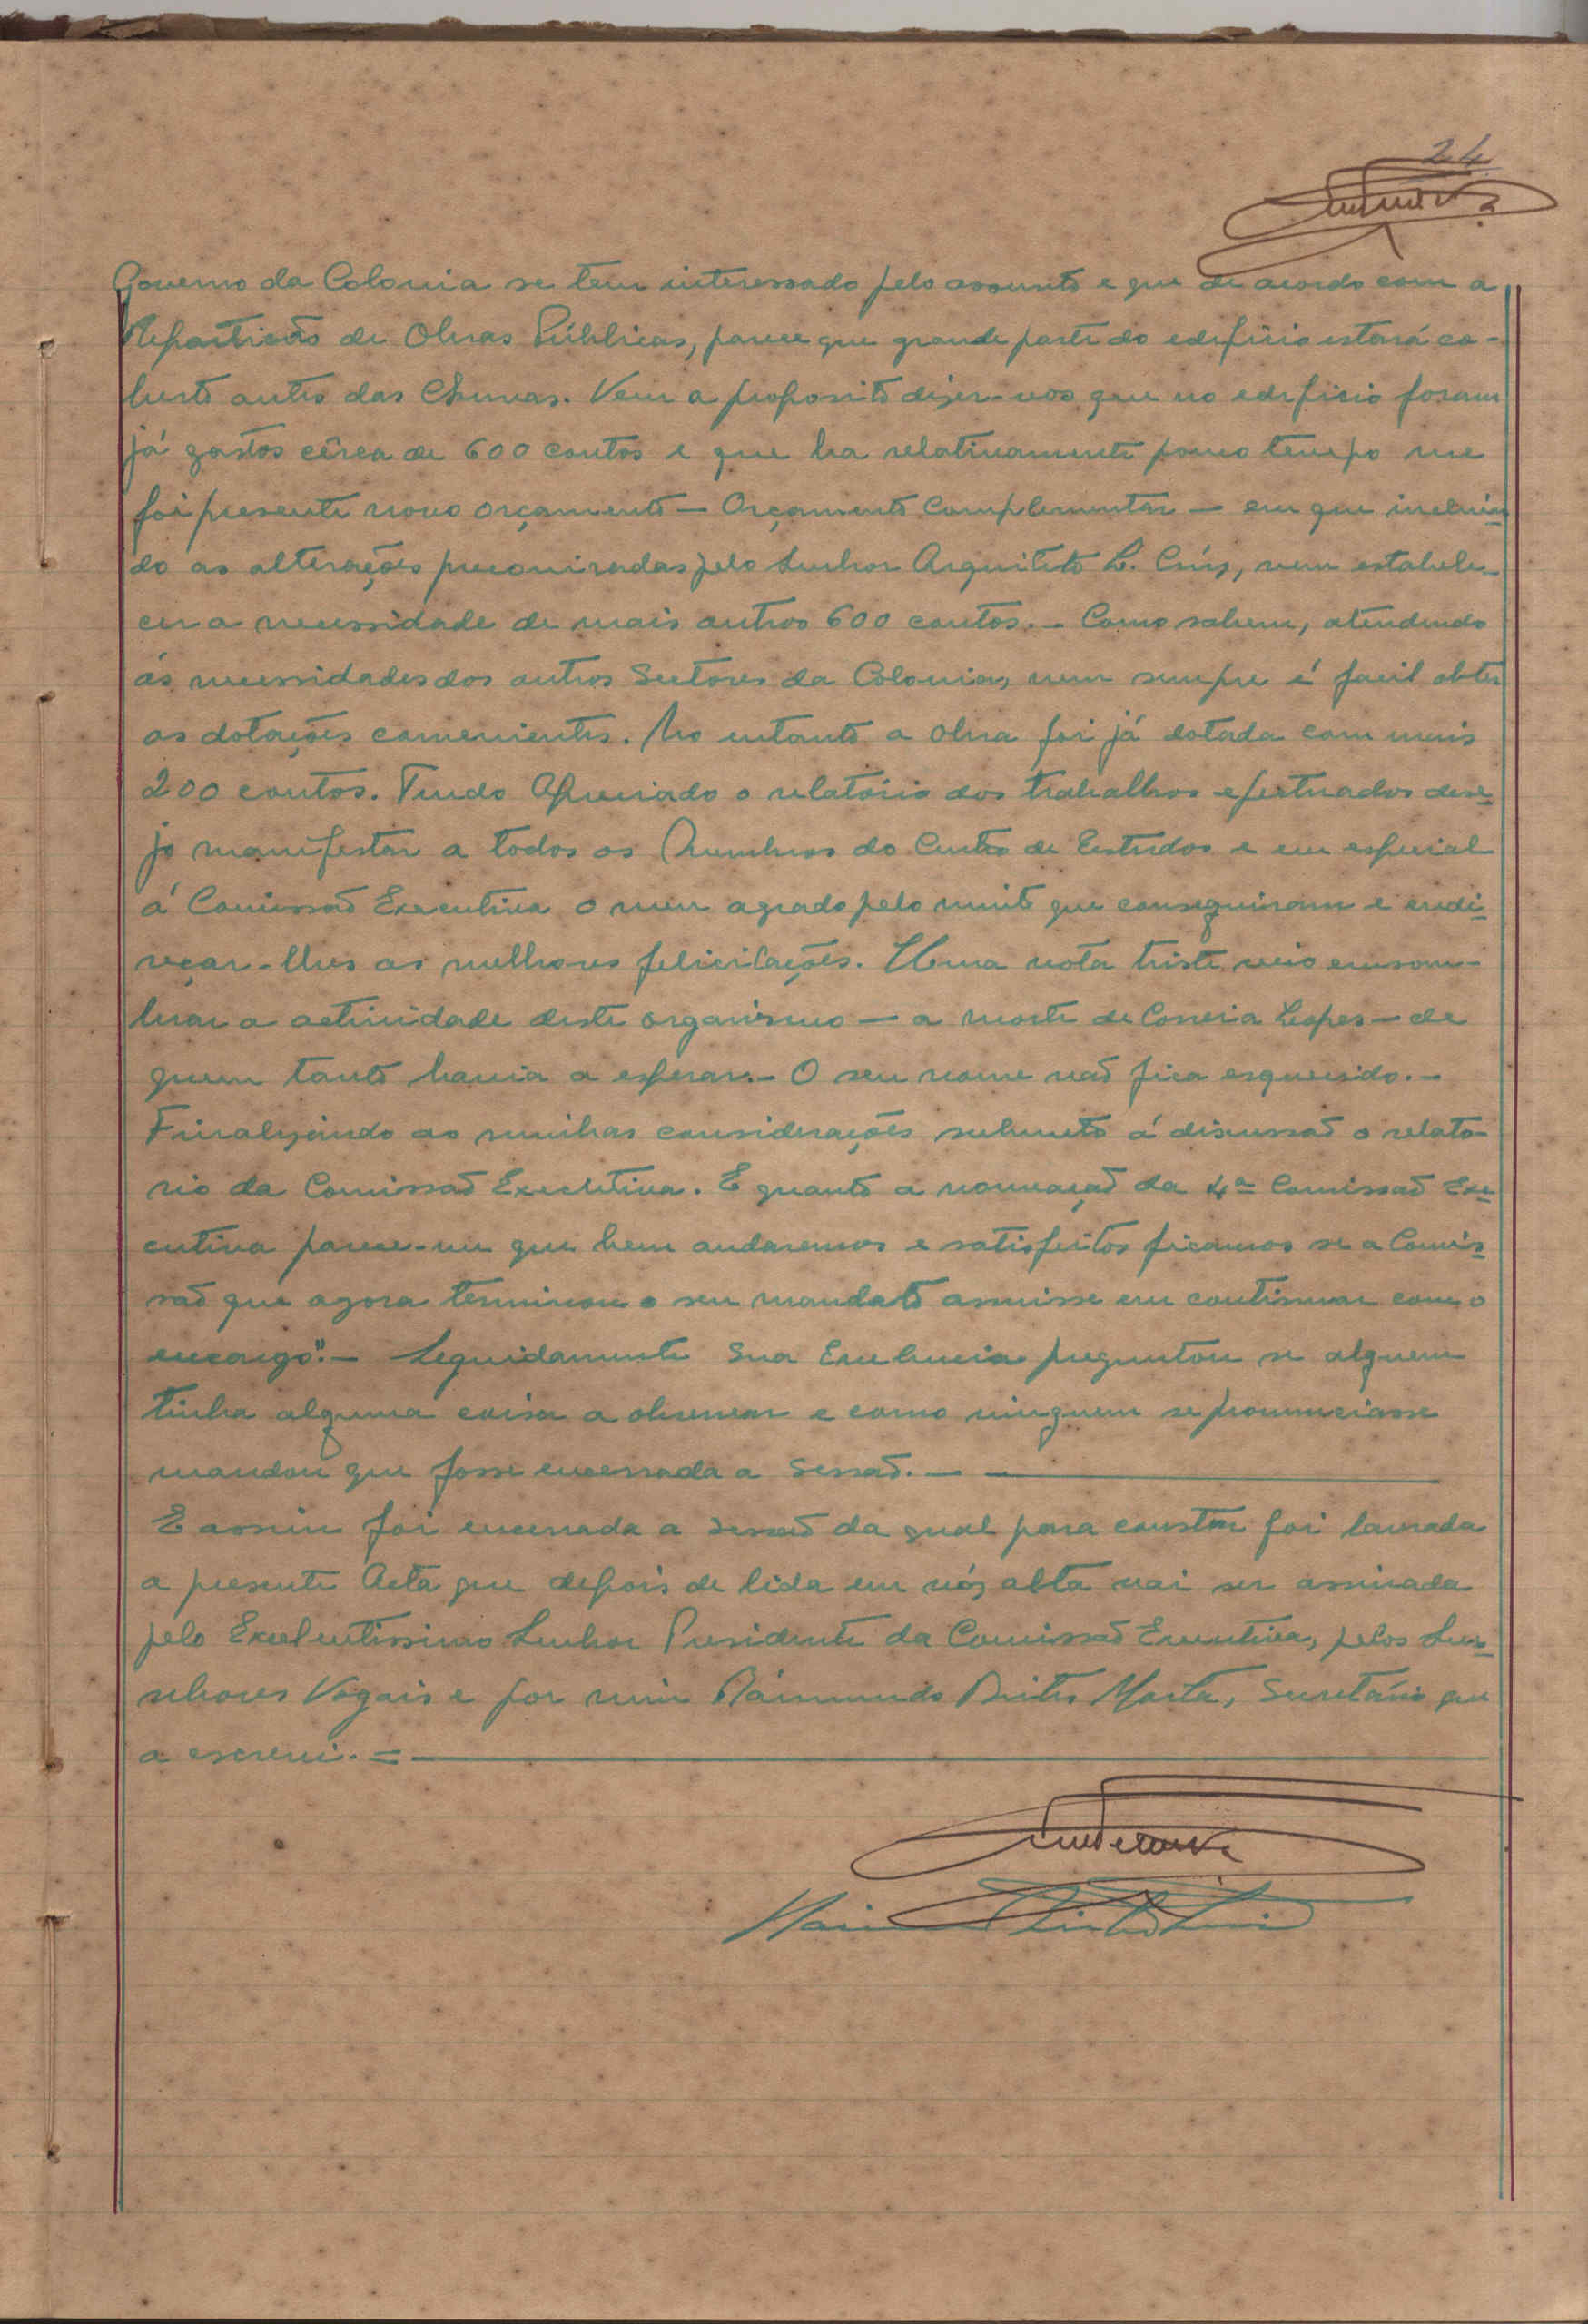 24
Governo da Colonia se tem interessado pelo assunto e que de acordo com a
Repartição de Obras Públicas, parece que grande parte do edificio estará co-
berto antes das Chuvas. Vem a proposito dizer-vos que no edificio foram
já gastos cêrca de 600 contos e que ha relativamente pouco tempo me
foi presente novo orçamento — Orçamento Complementar — em que incluin-
do as alterações preconizadas pelo Senhor Arquitéto L. Crúz, vem estabele-
cer a necessidade de mais outros 600 contos. — Como sabem, atendendo
ás necessidades dos outros Sectores da Colonia, nem sempre é facil obter
as dotações convenientes. No entanto a obra foi já dotada com mais
200 contos. Tendo Apreciado o relatório dos trabalhos efectuados dese-
jo manifestar a todos os Membros do Centro de Estudos e em especial
á Comissão Executiva o meu agrado pelo muito que conseguiram e ende-
reçar-lhes as melhores felicitações. Uma nota triste veio ensom-
brar a actividade deste organismo — a morte de Correia Lopes — de
quem tanto havia a esperar. — O seu nome não fica esquecido. —
Finalizando as minhas considerações submeto á discussão o relato-
rio da Comissão Executiva. E quanto a nomeação da 4ª Comissão Exe-
cutiva parece-me que bem andaremos e satisfeitos ficamos se a Comis-
são que agora terminou o seu mandato anuisse em continuar com o
encargo". — Seguidamente Sua Excelencia preguntou se alguem
tinha alguma coisa a observar e como ninguem se pronunciasse
mandou que fosse encerrada a Sessão. —
E assim foi encerrada a Sessão da qual para constar foi lavrada
a presente Acta que depois de lida em vóz alta vai ser assinada
pelo Excelentissimo Senhor Presidente da Comissão Executiva, pelos Se-
nhores Vogais e por mim Ráimundo Brites Marta, Secretário que
a escrevi. =